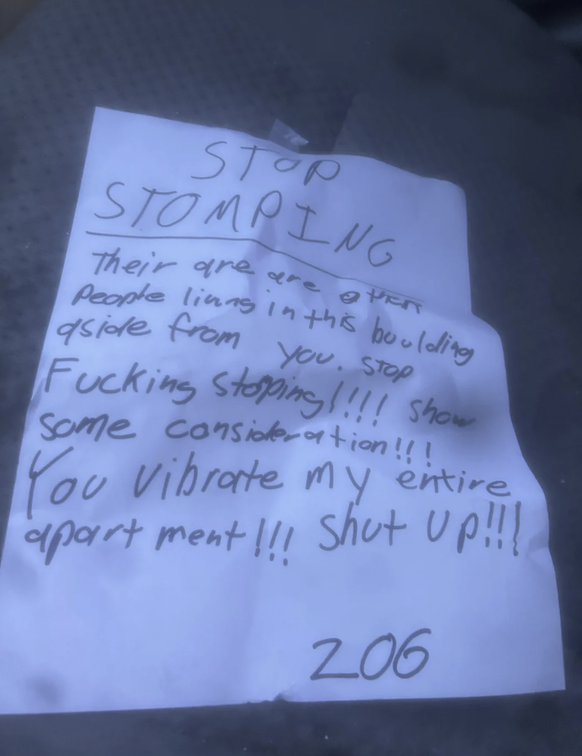 STOP
STOMPING
Their are are other
People living in this boulding
aside from you. Stop
Fucking stoping!!!! show
some consideration!!!
You vibrate my entire
apartment!!! Shut Up!!!
206